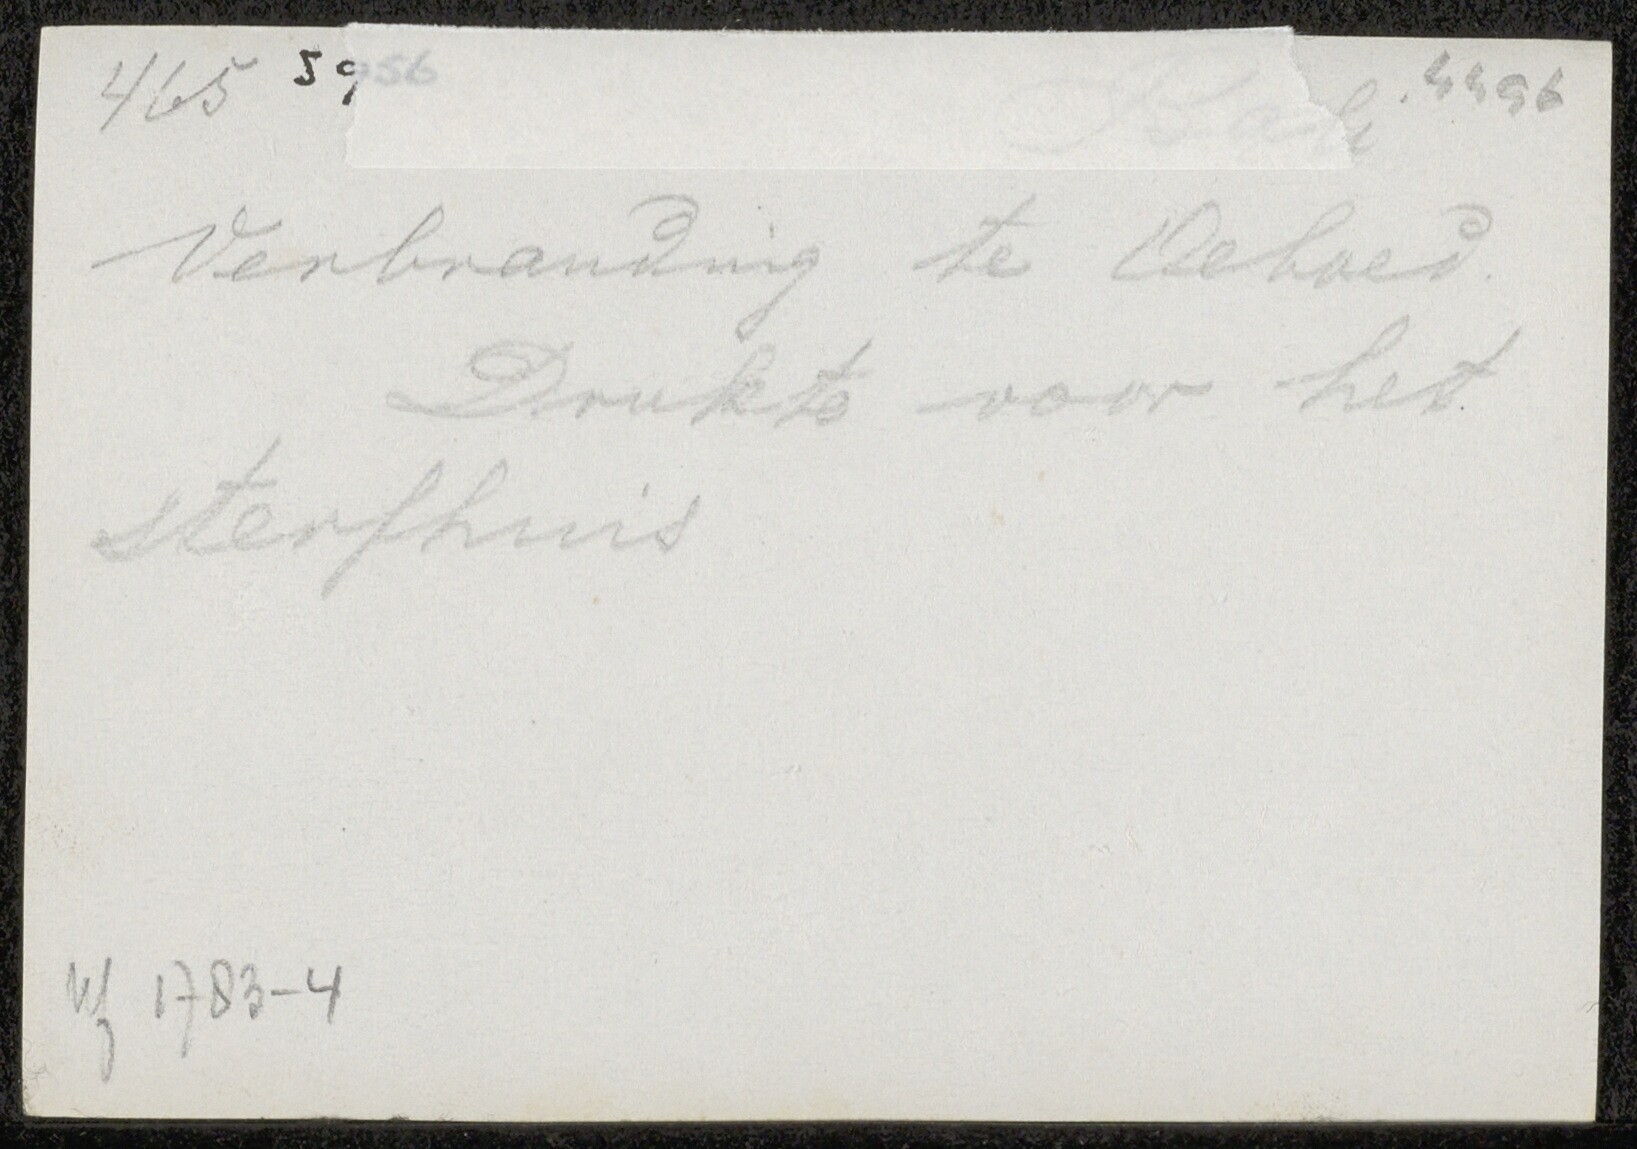 465 5956 Bali 4496
Verbranding te Oeboed.
Drukte voor het
sterfhuis
Wz 1783-4